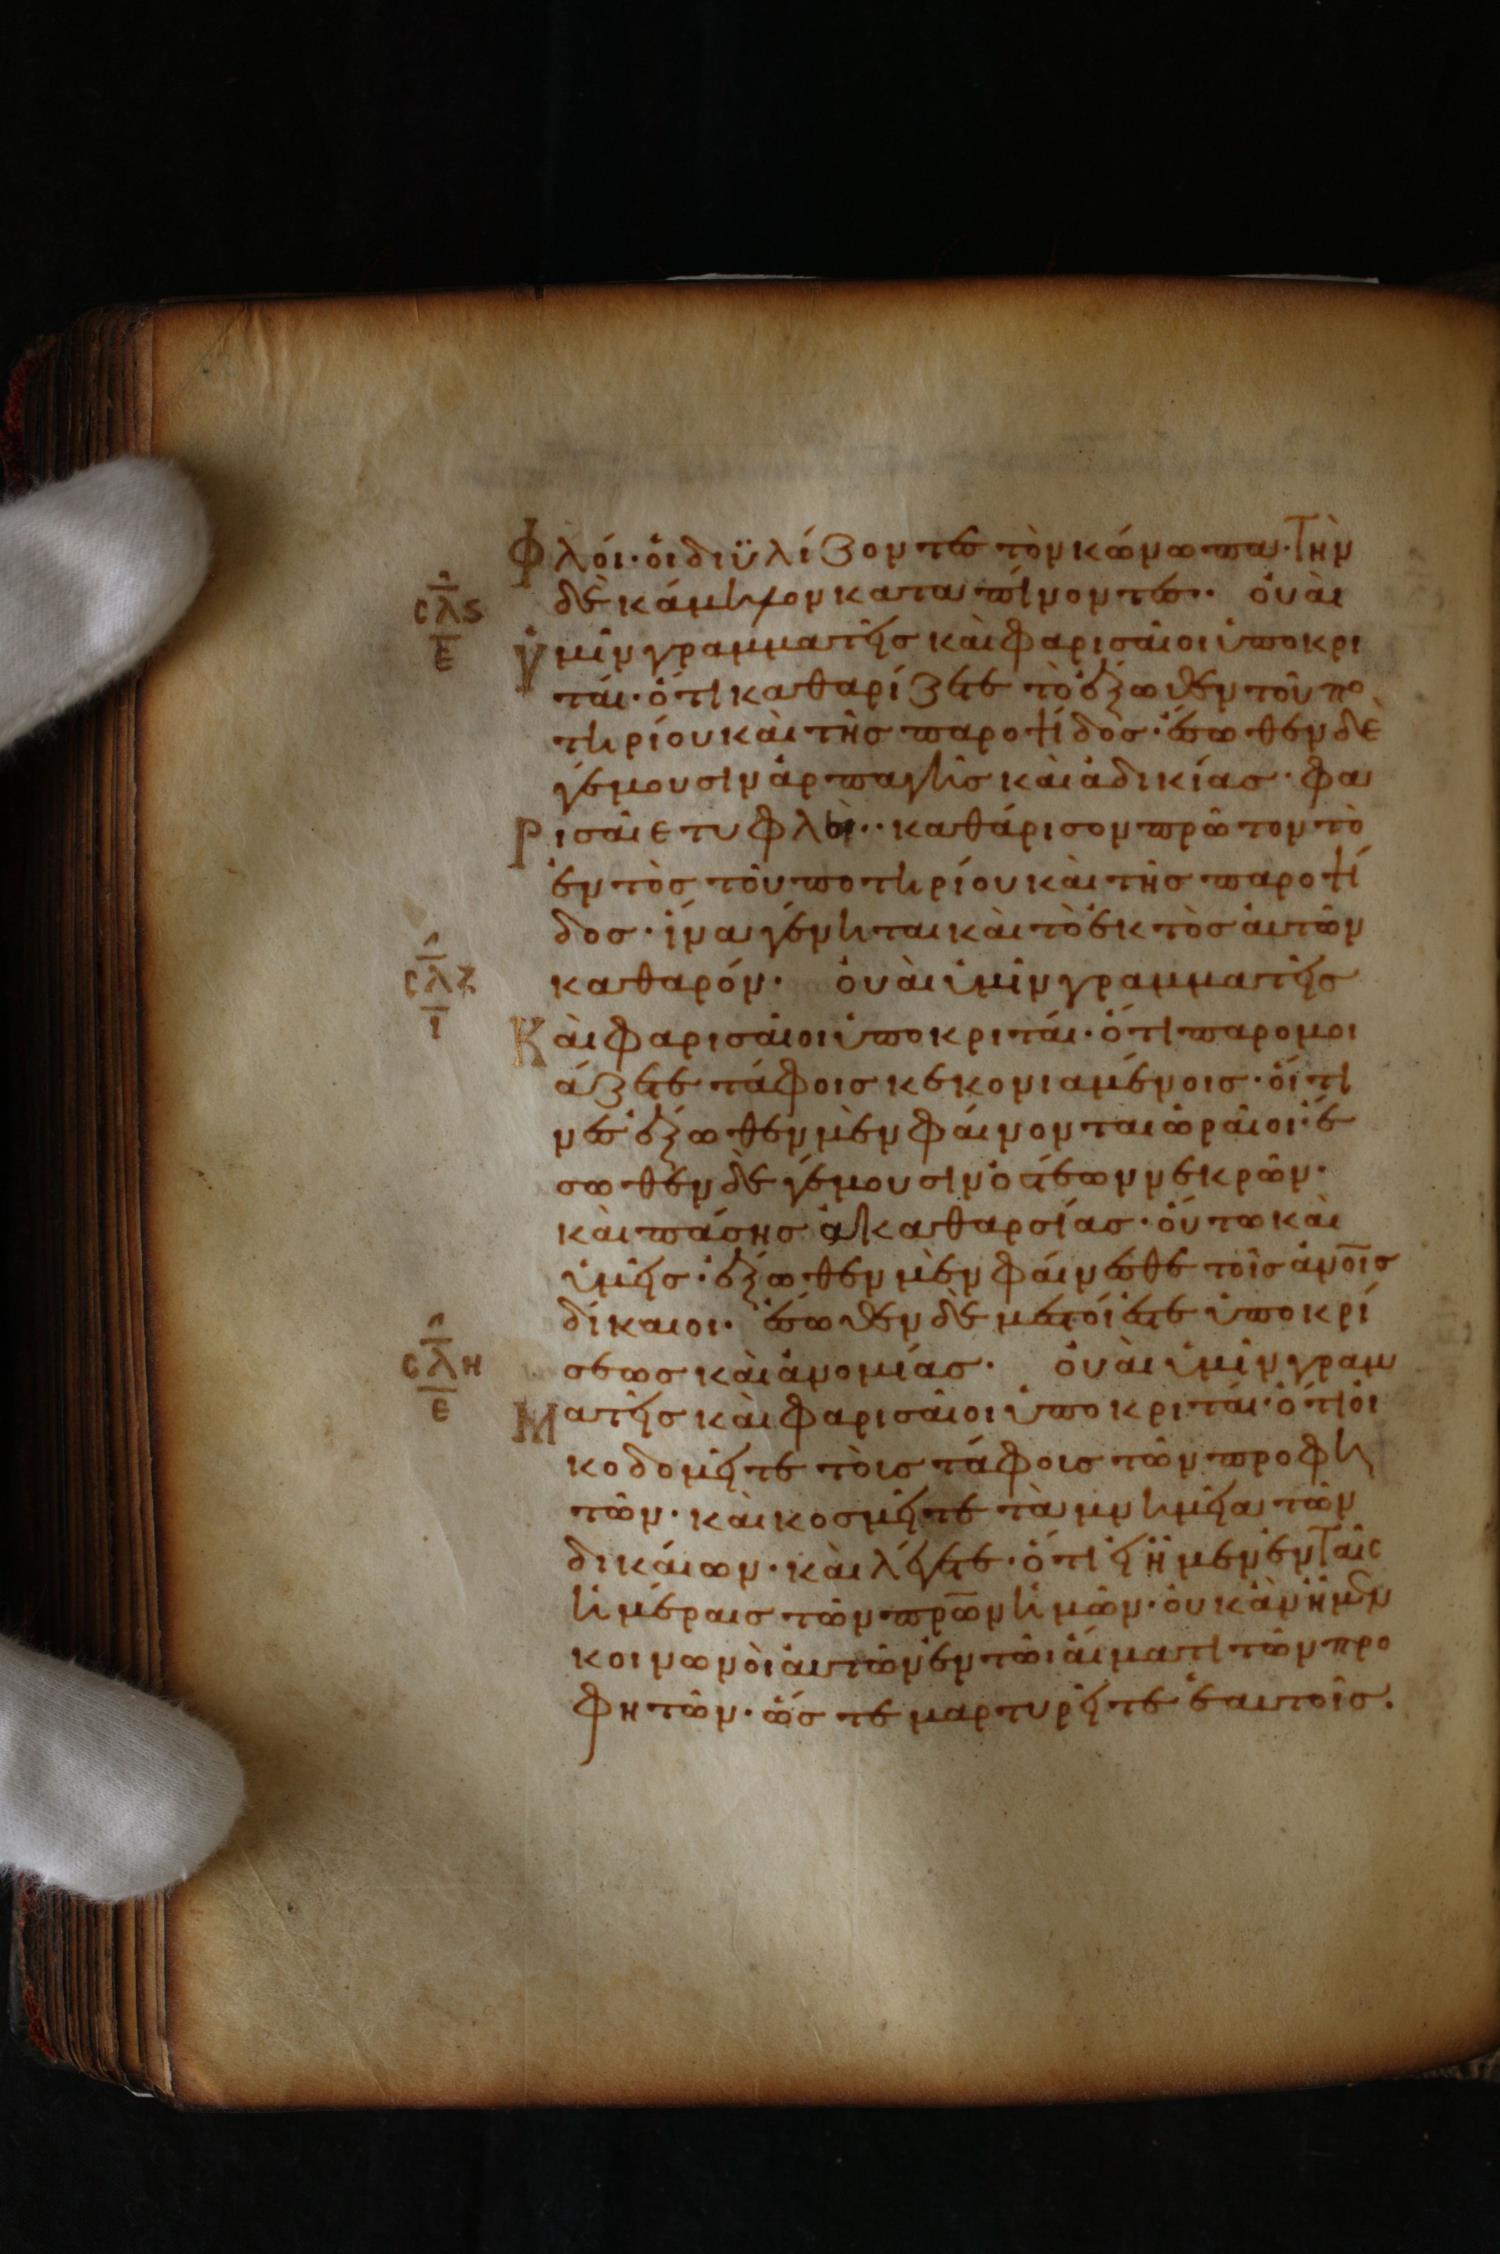 φλόι· ὁι διϋλίζοντες τὸν κώνωπα· τὴν
δὲ κάμηλον καταπίνοντες·· ὀυὰι
ὑμῖν γραμματεῖς κὰι φαρισᾶιοι ὑποκρι
τάι· ὅτι καθαρίζετε τὸ ἔξωθεν τοῦ πο
τηρίου κὰι τῆς παροψίδος· ἔσωθεν δὲ
γέμουσιν ἁρπαγῆς κὰι ἀδικίας· φα
ρισᾶιε τυφλὲ·· καθάρισον πρῶτον τὸ
ἐντὸς τοῦ ποτηρίου κὰι τῆς παροψί
δος· ἵνα γένηται κὰι τὸ ἐκτὸς ἀυτῶν
καθαρόν· ὀυὰι ὑμῖν γραμματεῖς
κὰι φαρισᾶιοι ὑποκριτάι· ὅτι παρομοι
άζετε τάφοις κεκονιαμένοις· ὅιτι
νες ἔξωθεν μὲν φάινονται ὡρᾶιοι· ἔ
σωθεν δὲ γέμουσιν ὀστέων νεκρῶν·
κὰι πάσης ἀκαθαρσίας· ὅυτω κὰι
ὑμεῖς· ἔξωθεν μὲν φάινεσθε τοῖς ἀν̅ο̅ι̅ς
δίκαιοι· ἔσωθεν δὲ μεστόι ἐστε ὑποκρί
σεως κὰι ἀνομίας· ὀυὰι ὑμῖν γραμ
ματεῖς κὰι φαρισᾶιοι ὑποκριτάι· ὅτι ὀι
κοδομεῖτε τὸις τάφοις τῶν προφη
τῶν· κὰι κοσμεῖτε τὰ μνημεῖα τῶν
δικάιων· κὰι λέγετε· ὅτι εἰ ἤμεν ἐν ταῖς
ἡμέραις τῶν π̅ρ̅ω̅ν ἡμῶν· ὀυκ ἀν ἤμεν
κοινωνὸι ἀυτῶν ἐν τῶι ἅιματι τῶν προ
φητῶν· ὥστε μαρτυρεῖτε ἑαυτοῖς.
σλϛ
ε
σλζ
ι
σλη
ε